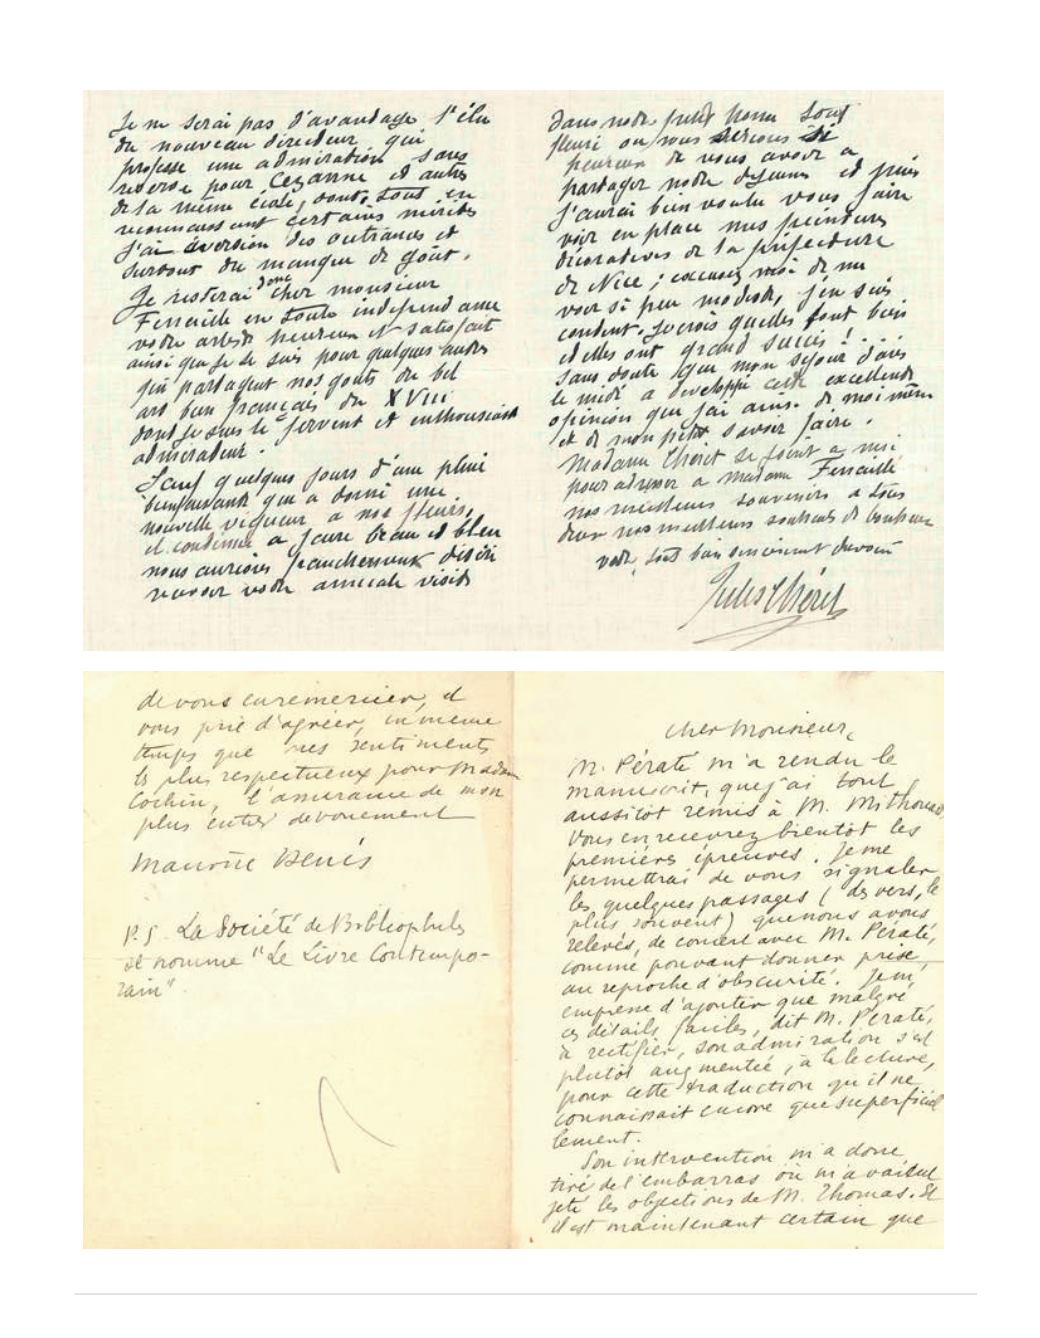 Je ne serai pas d'avantage l'élu
du nouveau directeur qui
professe une admiration sans
reserve pour Cezanne et autres
de la même école, dont, tout en
reconnaissant certains mérites
J'ai aversion des outrances et
surtout du manque de goût.
Je resterai donc cher monsieur
Fenaille en toute independance
votre artiste heureux et satisfait
ainsi que je le suis pour quelques autres
qui partagent nos gouts du bel
art bon français du XVIII
dont je suis le fervent et enthousiaste
admirateur.
Sauf quelques jours d'une pluie
bienfaisante qui a donné une
nouvelle vigueur a nos fleurs,
il continue a faire beau et bleu
nous aurions franchement désiré
recevoir votre amicale visite
dans notre petit home tout
fleuri ou nous serions si
heureux de vous avoir a
partager notre dejeuner et puis
J'aurai bien voulu vous faire
voir en place mes peintures
décoratives de la préfecture
de Nice ; excusez moi de me
voir si peu modeste, j'en suis
content. Je crois quelles font bien
et elles ont grand succès ! . .
sans doute que mon sejour dans
le midi a developpé cette excellente
opinion que j'ai ainsi de moi même
et de mon petit savoir faire.
Madame Chéret se joint a moi
pour adresser a madame Fenaille
nos meilleurs souvenirs a tous
deux nos meilleurs souhaits de bonheur
votre tout bien sincèrement devoué
Jules Chéret
de vous en remercier, et
vous prie d'agréer, en même
temps que mes sentiments
les plus respectueux pour Madame
Cochin, l'assurance de mon
plus entier dévouement
Maurice Denis
P.S. La Société de Bibliophiles
se nomme "Le Livre Contempo-
rain"
Cher Monsieur,
M. Pératé m'a rendu le
manuscrit, que j'ai tout
aussitôt remis à M. Mithouard,
Vous en recevrez bientôt les
premières épreuves. Je me
permettrai de vous signaler
les quelques passages (des vers, le
plus souvent) que nous avons
relevés, de concert avec M. Pératé,
comme pouvant donner prise
au reproche d'obscurité. Je m'
empresse d'ajouter que malgré
ces détails faciles, dit M. Pératé,
à rectifier, son admiration s'est
plutôt augmentée, à la lecture,
pour cette traduction qu'il ne
connaissait encore que superficiel
lement.
Son intervention m'a donc
tiré de l'embarras où m'avaient
jeté les objections de M. Thomas. Et
il est maintenant certain que